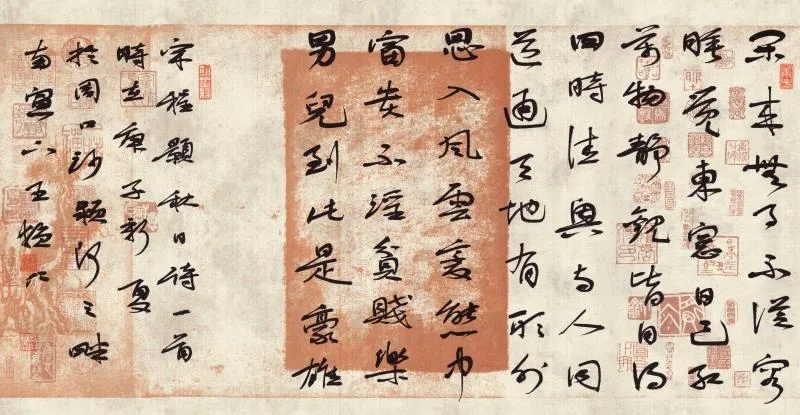 閑来無事不從容
睡覺東窗日已紅
萬物靜觀皆自得
四時佳興与人同
道通天地有形外
思入風雲變態中
富貴不淫貧賤樂
男兒到此是豪雄
宋程顥秋日詩一首
時在庚子新夏
於周口沙颍河之畔
南窗下王